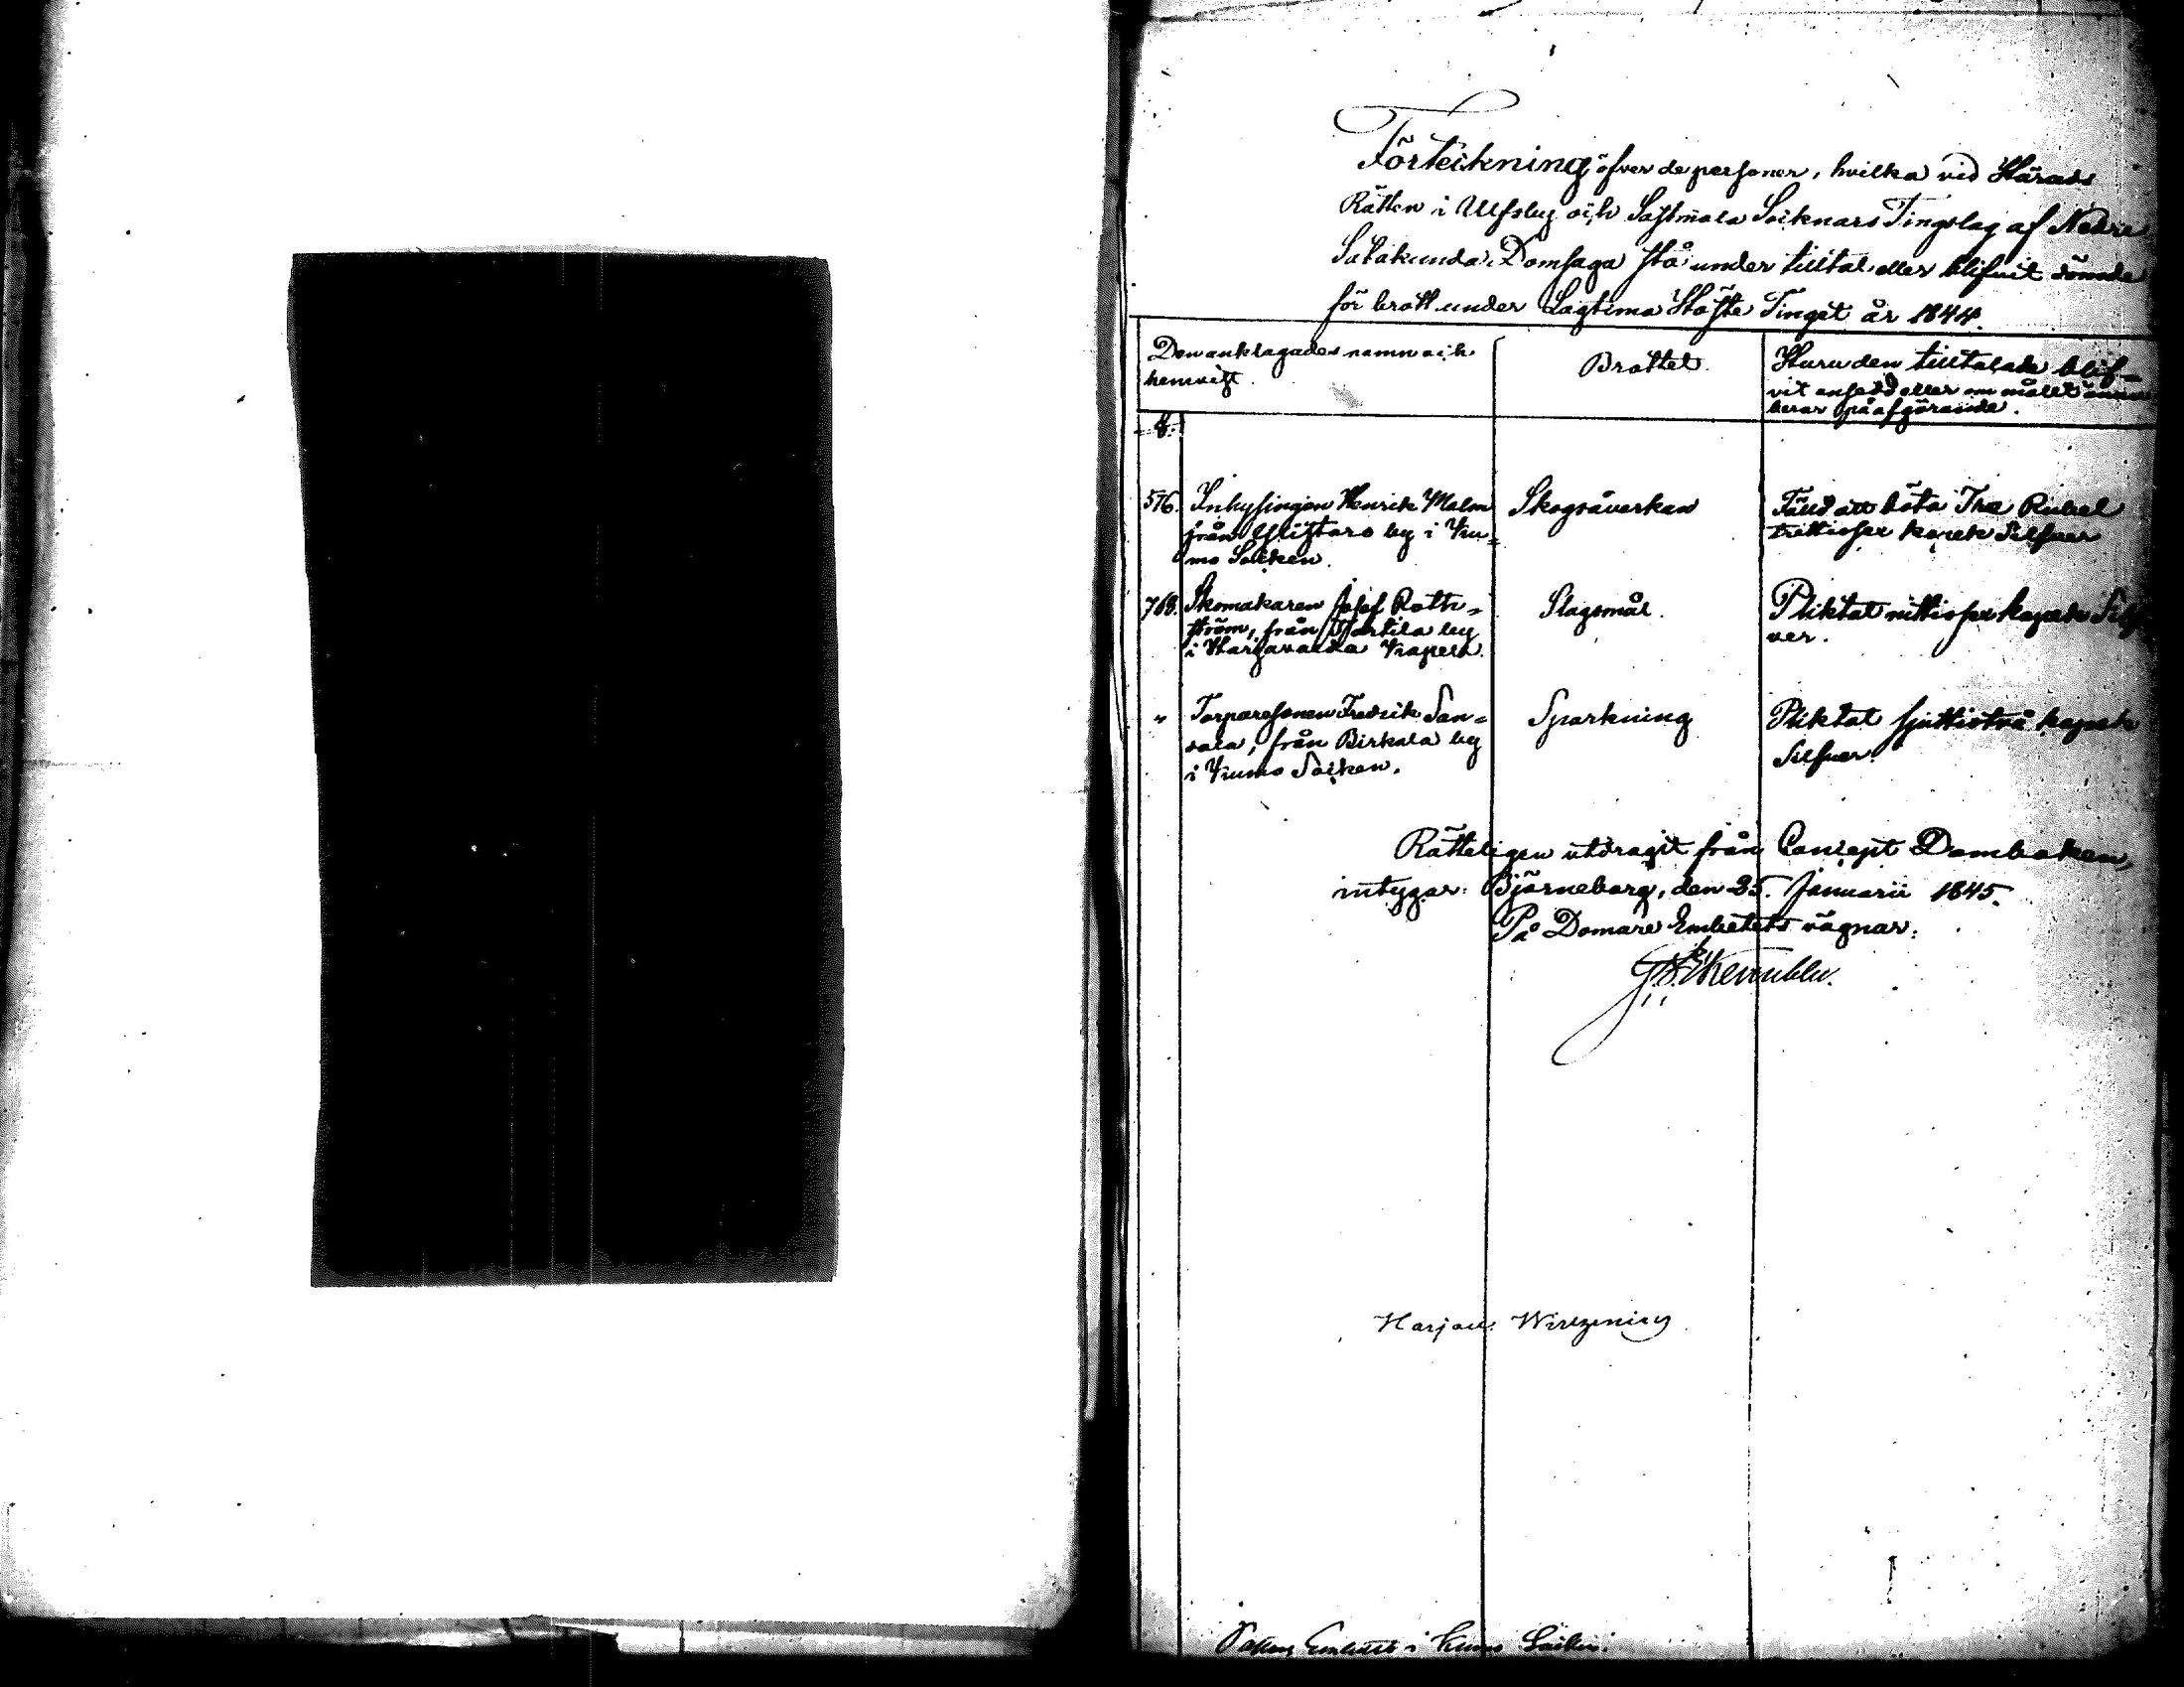 Förteckning öfver de personer, hvilka vid Härads
Rätten i Ulfsby och Sastmola Socknars Tingslag af Nedre
Satakunda Domsaga stå under tilltal eller blifvit dömde
för brott under Lagtima Höste Tinget år 1844.
Den anklagades namn och
hemvist.
Brottet.
Huru den tilltalade blif-
vit ansedd eller om målet ännu
beror på afgörande.
§.
576. Inhysingen Henrik Malm
från Ylistaro by i Kiu-
mo Socken.
Skogsåverkan
Fälld att böta Tre Rubel
trettiosex kopek Silfver
768. Skomakaren Josef Roth-
ström, från Torttila by
i Harjavalda Kapell.
Slagsmål.
Pliktat nittiosex kopek Silf
ver.
" Torparesonen Fredrik
från Birkala by
i Kiumo Socken.
Sparkning
Pliktat sjuttiotvå kopek
Silfver.
Rätteligen utdragit från Concept Domboken,
intygar: Björneborg, den 25. Januarii 1845.
På Domare Embetets vägnar:
Harjav:
Embetet i Kumo Socken.